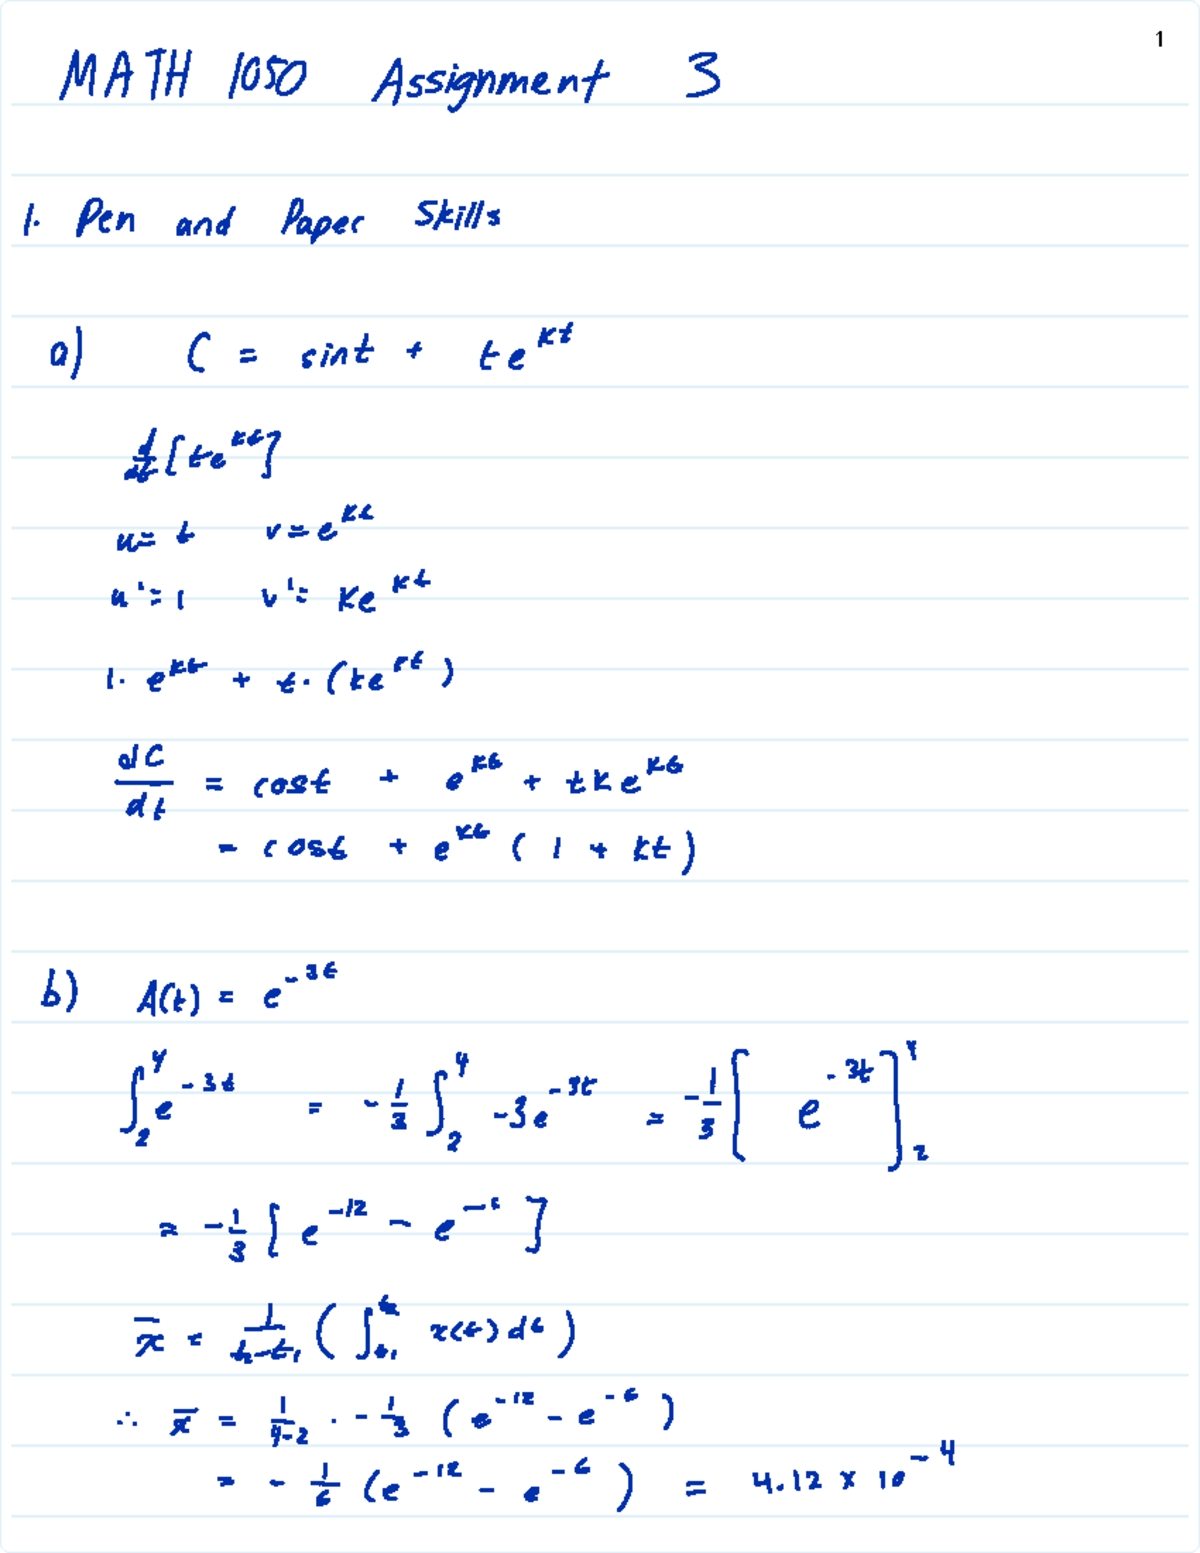 1
MATH 1050 Assignment 3
1. Pen and Paper Skills
a) C = sint + te^{kt}
d/dt [te^{kt}]
u = t v = e^{kt}
u' = 1 v' = ke^{kt}
1 · e^{kt} + t · (ke^{kt})
dC/dt = cost + e^{kt} + tke^{kt}
= cost + e^{kt} (1 + kt)
b) A(t) = e^{-3t}
∫_2^4 e^{-3t} = -1/3 ∫_2^4 -3e^{-3t} = -1/3 [e^{-3t}]_2^4
= -1/3 [e^{-12} - e^{-6}]
x̄ = 1/(t₂-t₁) (∫_{t₁}^{t₂} x(t) dt)
∴ x̄ = 1/(4-2) · -1/3 (e^{-12} - e^{-6})
= -1/6 (e^{-12} - e^{-6}) = 4.12 x 10^{-4}